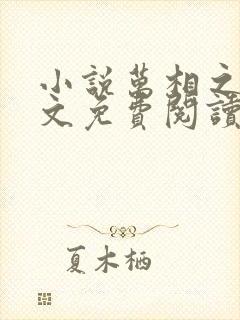 小說萬相之
文免費閱讀
夏木栖